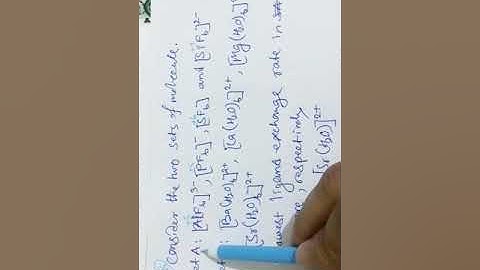 Consider the two sets of molecule.
A: [AlF6]3-, [PF6]-, [SF6] and [SiF6]2-
: [Ba(H2O)6]2+, [Ca(H2O)6]2+, [Mg(H2O)6]2+
[Sr(H2O)6]2+
ligand exchange rate in
, respectively
[Sr(H2O)]2+